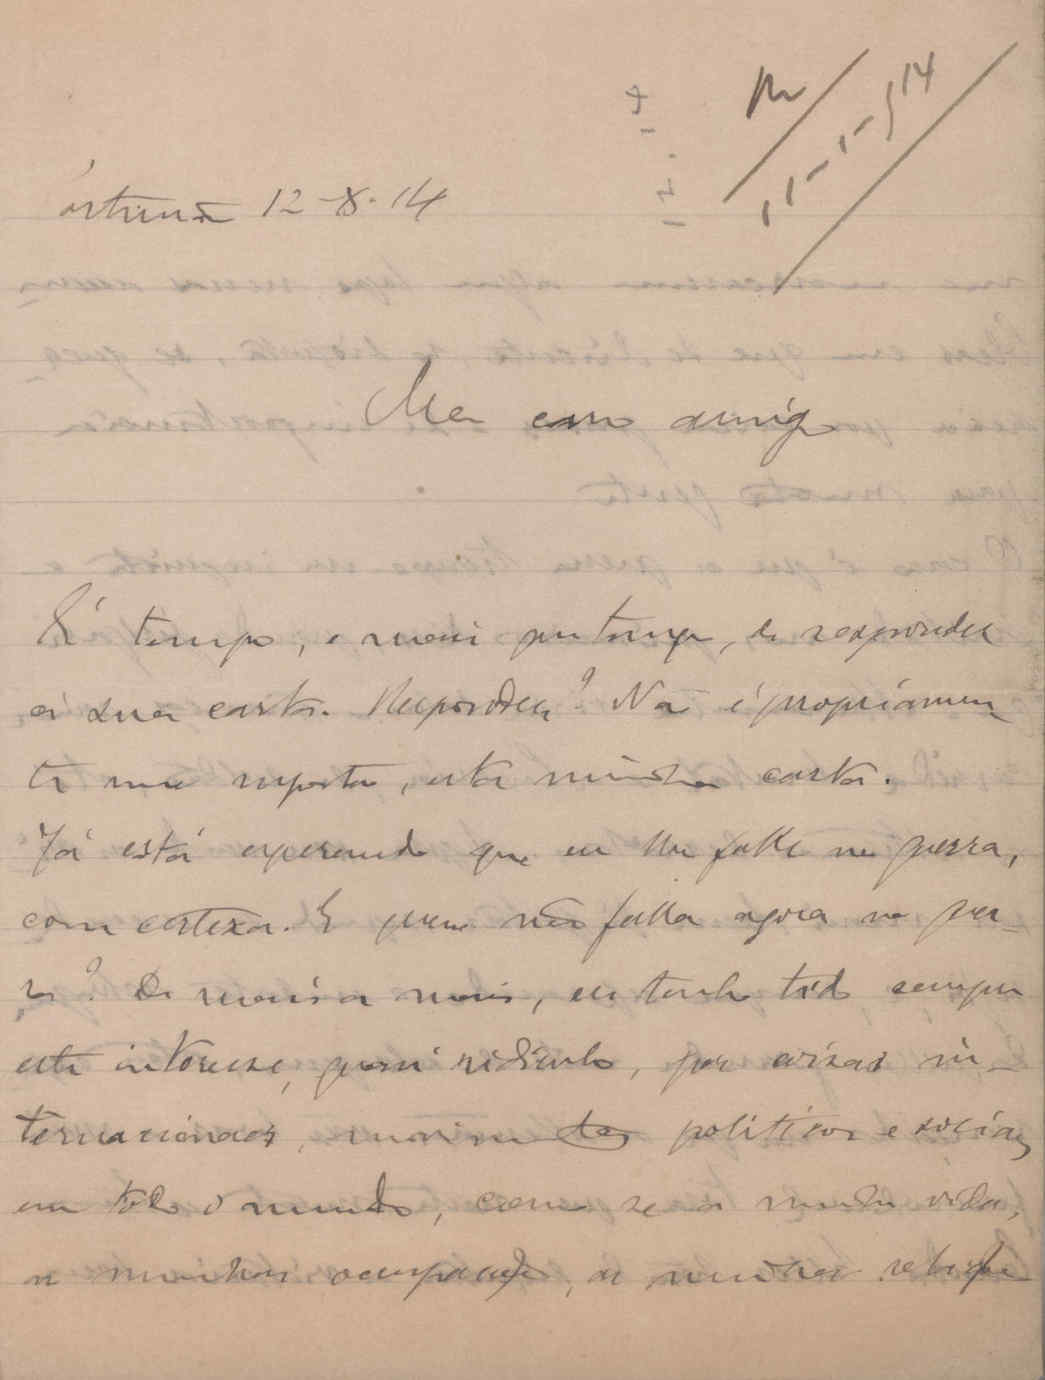 12-8-14
Meu caro amigo
É tempo, e mais que tempo, de responder
á sua carta. Responder? Não é propriamen
te uma resposta, esta minha carta.
Já está esperando que eu lhe falle na guerra,
com certeza. E quem não falla agora na guer-
ra? De mais a mais, eu tenho tido sempre
este interesse, quasi ridiculo, por coisas in-
ternacionaes, movimentos politicos e sociaes
em todo o mundo, como se a minha vida,
as minhas occupações, as minhas relações